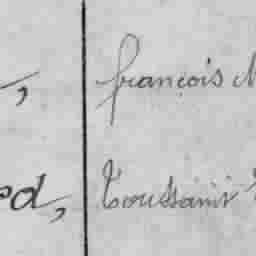 , françois
d, Toussaint